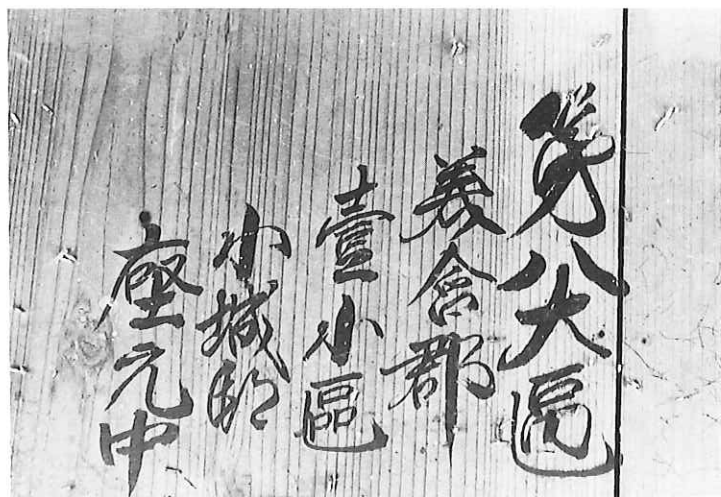 第八大區
美含郡
壹小區
小城邨
座元中